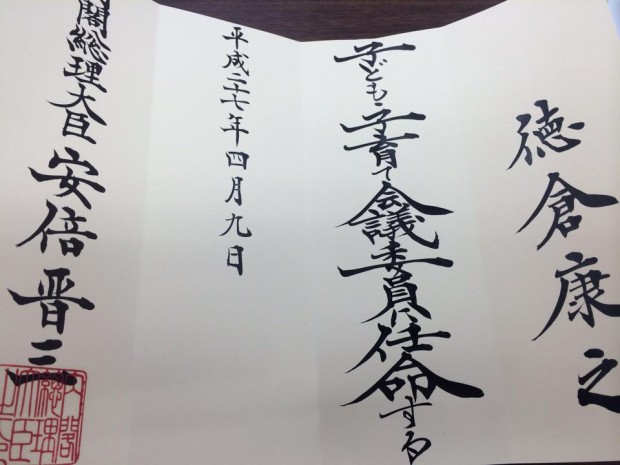 徳倉康之
子ども・子育て会議委員に任命する
平成二十七年四月九日
閣総理大臣 安倍晋三